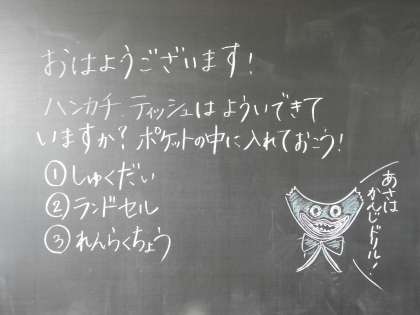 おはようございます!
ハンカチ、ティッシュは よういできて
いますか? ポケットの中に入れておこう!
①しゅくだい
②ランドセル
③れんらくちょう
あさは
かんじドリル!